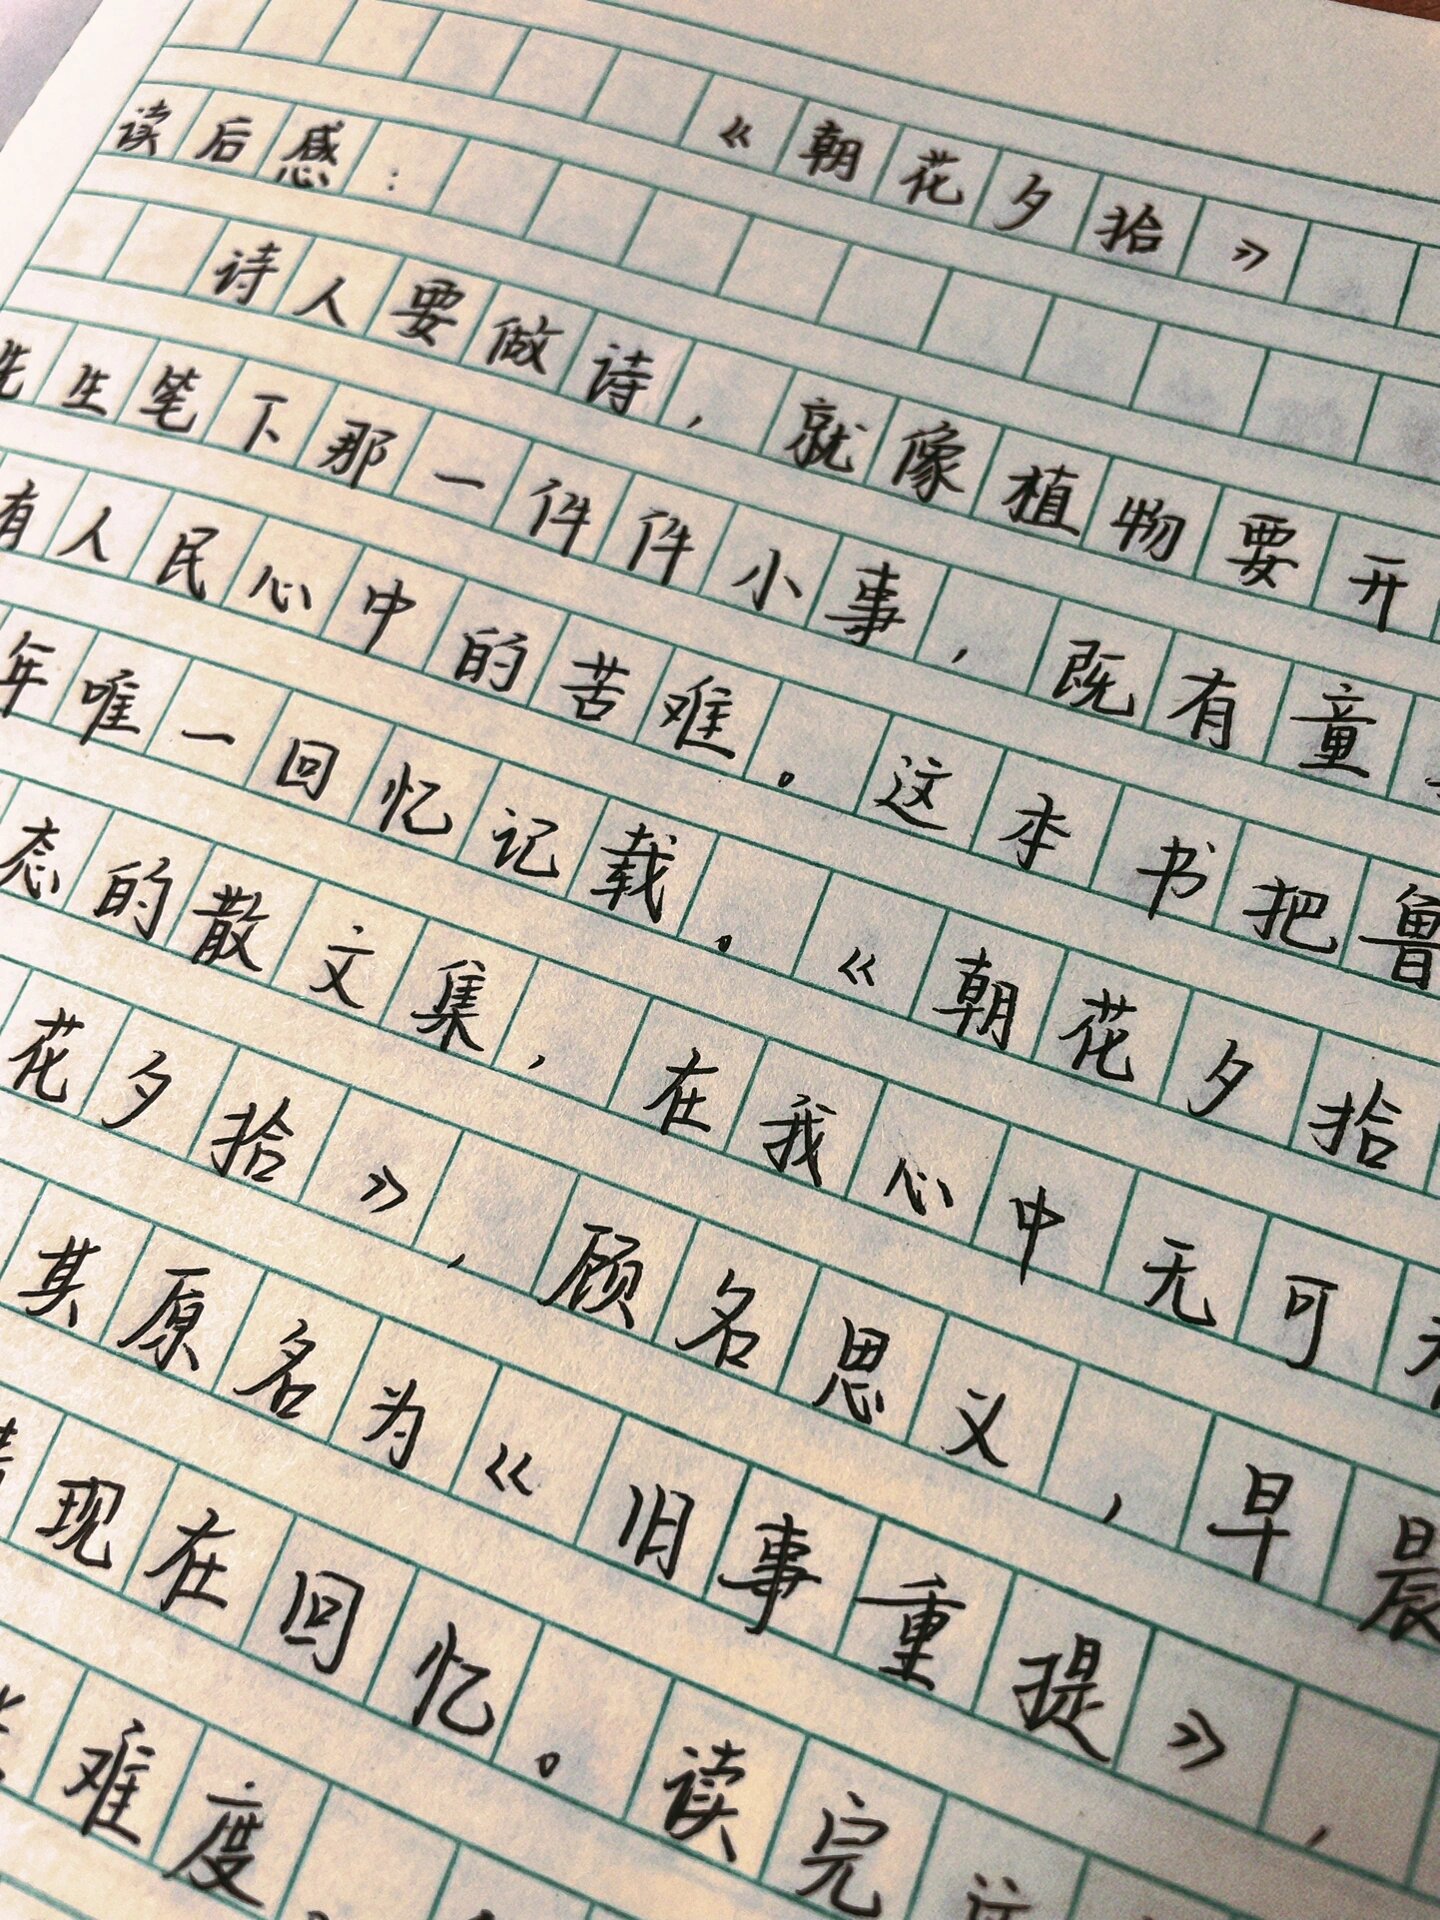 《朝花夕拾》
读后感：
诗人要做诗，就像植物要开
先生笔下那一件件小事，既有童
有人民心中的苦难。这本书把鲁
年唯一回忆记载。《朝花夕拾
态的散文集，在我心中无可
花夕拾》，顾名思义，早晨
其原名为《旧事重提》，
现在回忆。读完这
难度